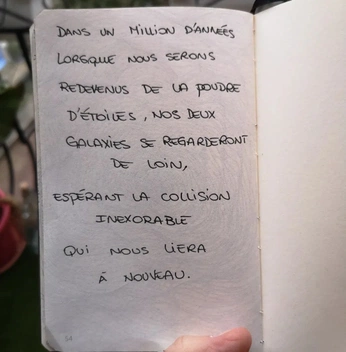 DANS UN MILLION D'ANNÉES
LORSQUE NOUS SERONS
REDEVENUS DE LA POUDRE
D'ÉTOILES, NOS DEUX
GALAXIES SE REGARDERONT
DE LOIN,
ESPÉRANT LA COLLISION
INEXORABLE
QUI NOUS LIERA
À NOUVEAU.